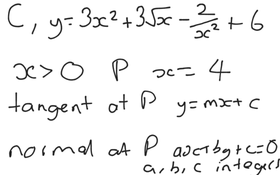 C, y=3x²+3√x-2/x²+6
x>0 P x=4
tangent at P y=mx+c
normal at P ax+by+c=0
a, b, c integers